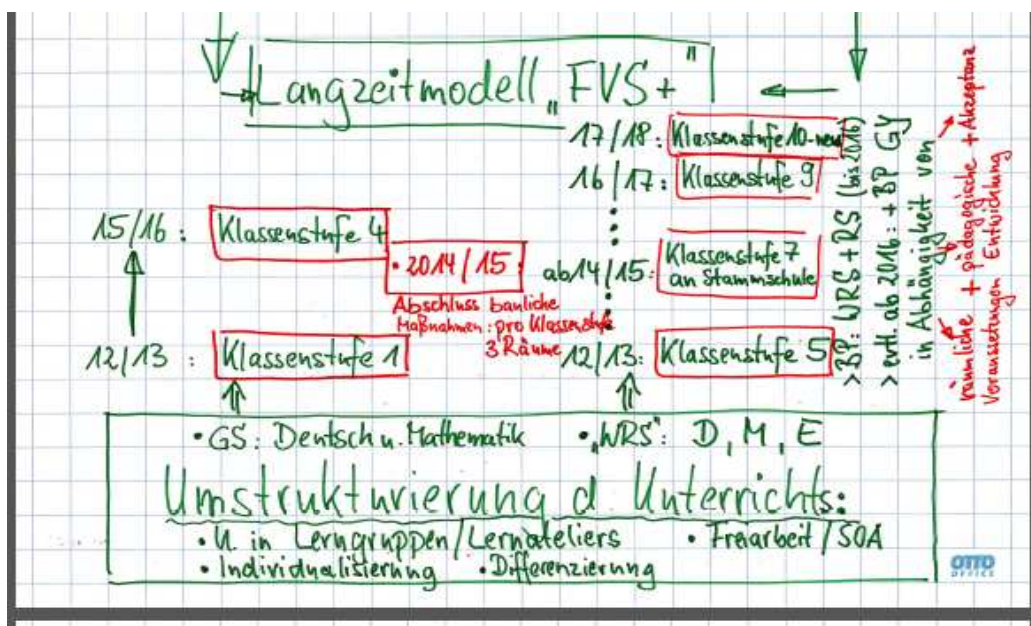 Langzeitmodell „FVS+"
17/18: Klassenstufe 10-neu
16/17: Klassenstufe 9
15/16: Klassenstufe 4
• 2014/15
ab 14/15: Klassenstufe 7
an Stammschule
Abschluss bauliche
Maßnahmen: pro Klassenstufe
3 Räume
12/13: Klassenstufe 1
12/13: Klassenstufe 5
>BP: WRS+RS (bis 2016)
> evtl. ab 2016: +BP GY
in Abhängigkeit von
räumliche + pädagogische + Akzeptanz
Voraussetzungen Entwicklung
• GS: Deutsch u. Mathematik • „WRS": D, M, E
Umstrukturierung d. Unterrichts:
• U. in Lerngruppen/Lernateliers • Freiarbeit/SOA
• Individualisierung • Differenzierung
OTTO
OFFICE